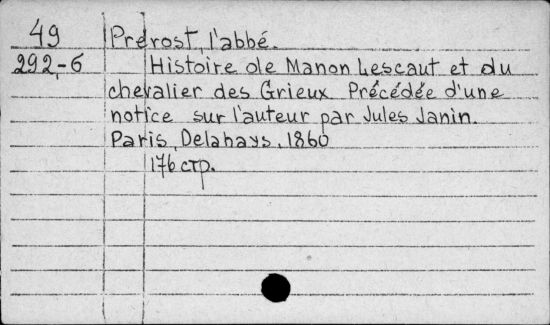 49 Prévost, l'abbé.
292,-6 Histoire de Manon Lescaut et du
chevalier des Grieux Précédée d'une
notice sur l'auteur par Jules Janin.
Paris, Delahays, 1860
176 стр.